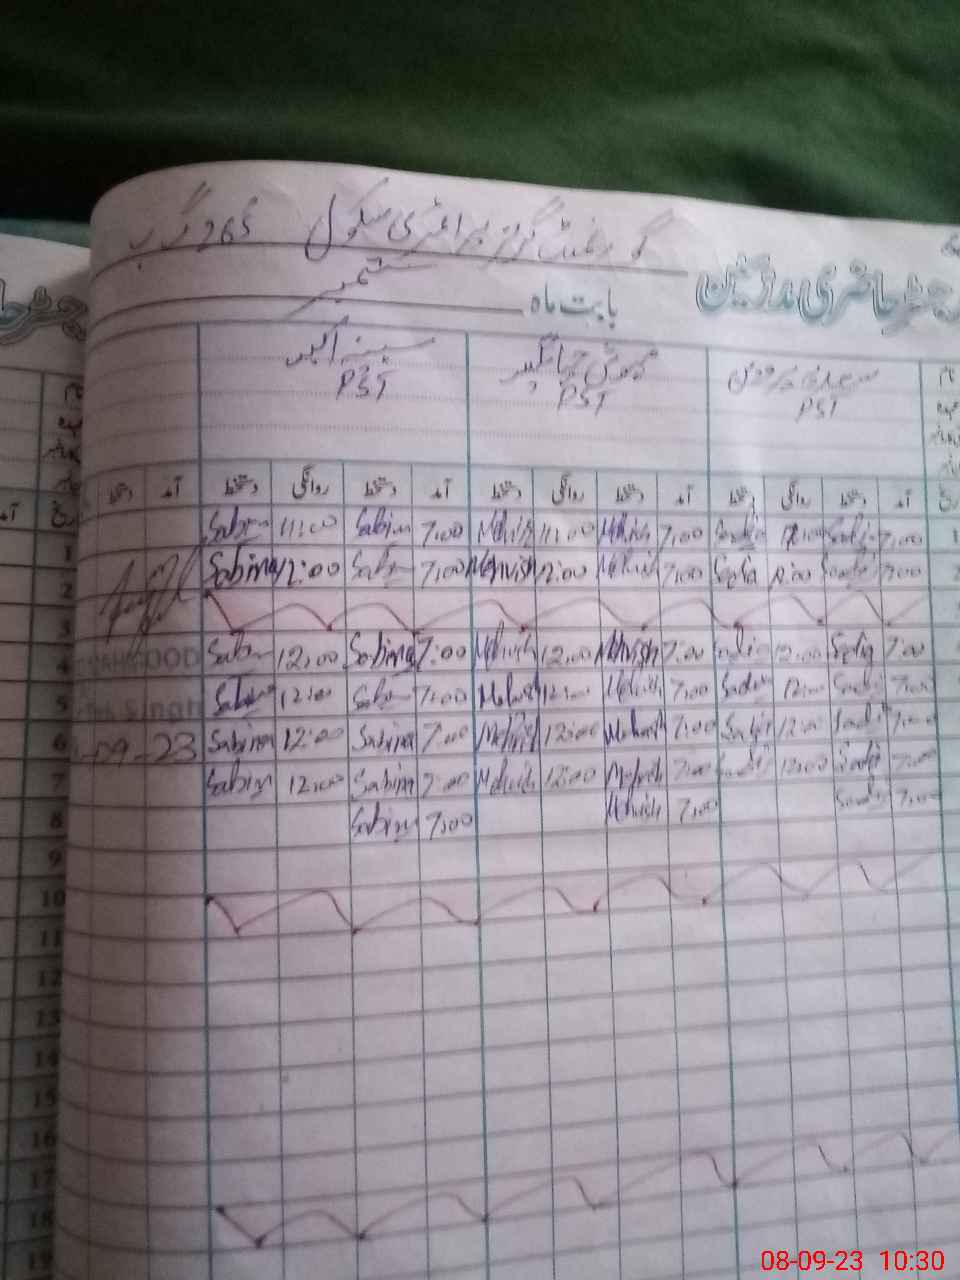 گورنمنٹ گرلز پرائمری سکول 265 گ ب
رجسٹر حاضری مدرسین بابت ماہ ستمبر
سعدیہ مہوش جہانگیر سبینہ اکبر
PST PST PST
آمد دستخط روانگی دستخط آمد دستخط روانگی دستخط آمد دستخط روانگی دستخط آمد دستخط
1 Sabin 11:00 Sabin 7:00 Mehvish 11:00 Mehvish 7:00 Sadia Sadia 7:00
2 Sabina 12:00 Sabin 7:00 Mehvish 12:00 Mehvish 7:00 Sadia 12:00 Sadia 7:00
3
4 Sabin 12:00 Sabina 7:00 Mehvish 12:00 Mehvish 7:00 Sadia 12:00 Sadia 7:00
5 Singh Sabin 12:00 Sabin 7:00 Mehvish 12:00 Mehvish 7:00 Sadia 12:00 Sadia 7:00
6 -09-23 Sabina 12:00 Sabina 7:00 Mehvish 12:00 Mehvish 7:00 Sadia 12:00 Sadia 7:00
7 Sabin 12:00 Sabina 7:00 Mehvish 12:00 Mehvish 7:00 Sadia 12:00 Sadia 7:00
8 Sabin 7:00 Mehvish 7:00 Sadia 7:00
9
10
11
12
13
14
15
16
17
18
19
08-09-23 10:30